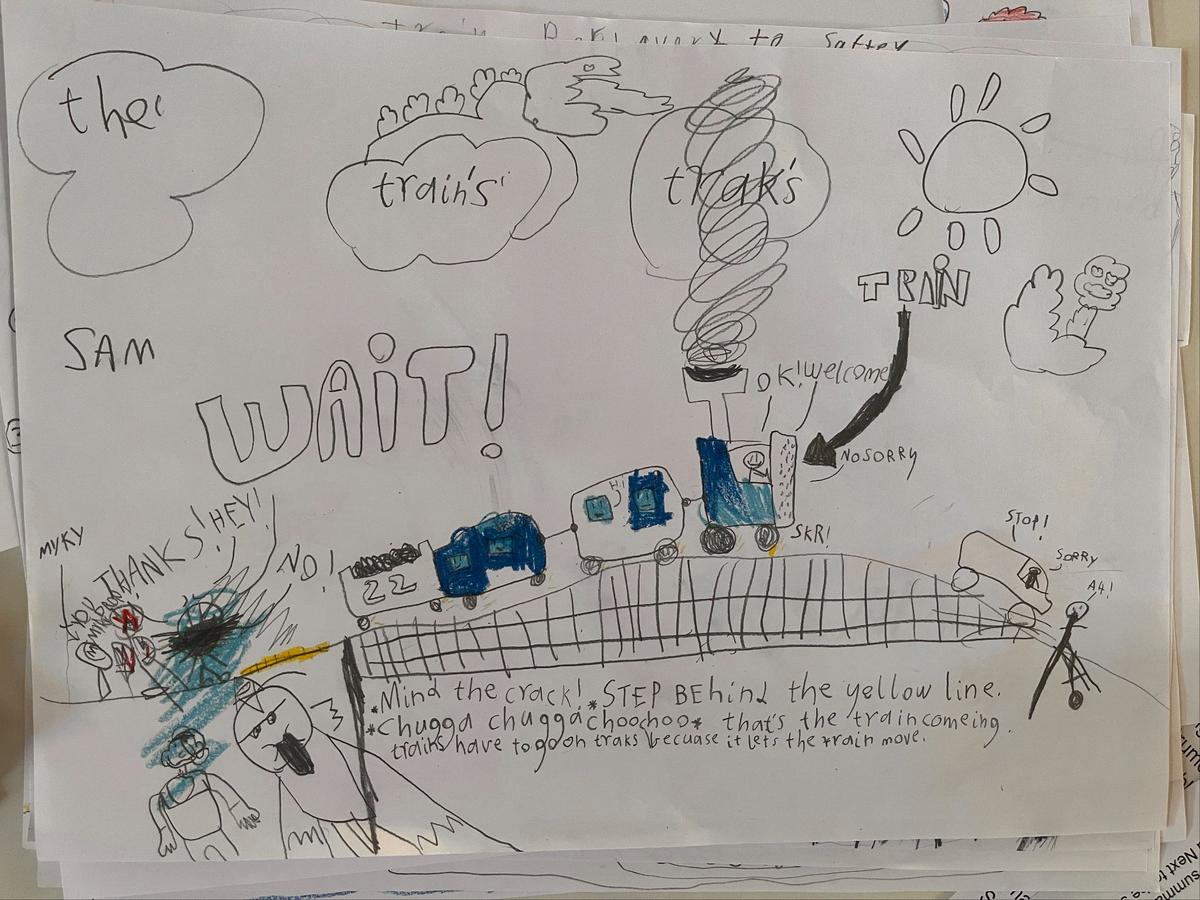 the
train's
traks
TRAIN
SAM
WAIT!
OK! Welcome
NO SORRY
HI
SKR!
STOP!
SORRY
A4!
MYKY
THANKS!
HEY!
NO!
22
*Mind the crack! *STEP BEhind the yellow line.
*Chugga chugga choochoo* that's the train comeing.
trains have to go on traks becuase it lets the train move.